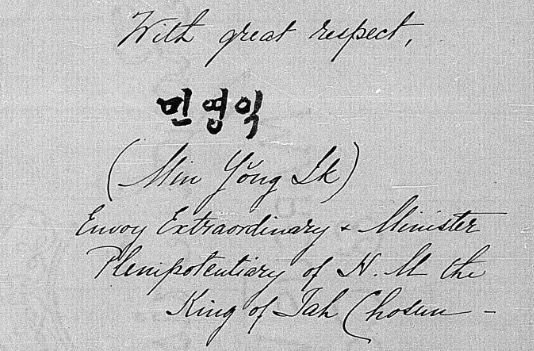 With great respect,
민영익
(Min Yŏng Ik)
Envoy Extraordinary & Minister
Plenipotentiary of H. M the
King of Tah Chosun -